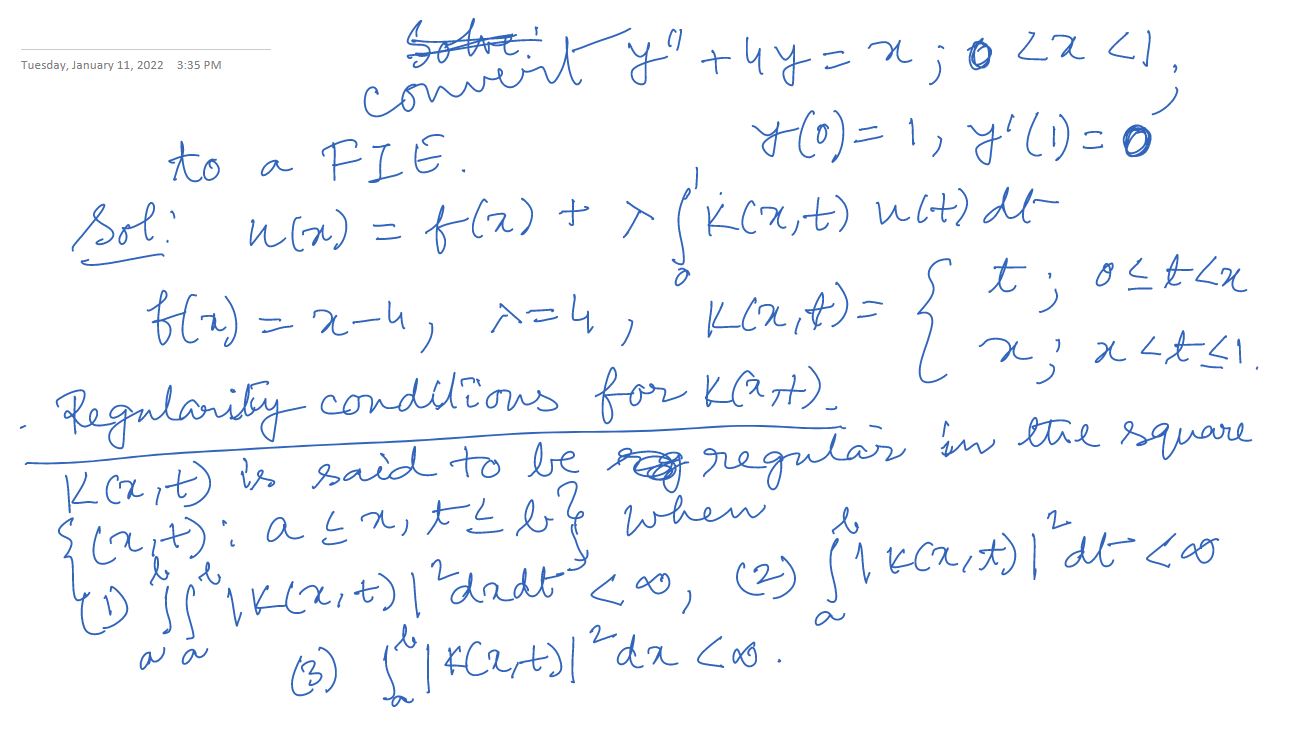 Tuesday, January 11, 2022 3:35 PM
convert y'' + 4y = x ; 0 < x < 1 ,
y(0) = 1 , y'(1) = 0
to a FIE.
Sol: u(x) = f(x) + λ ∫₀¹ K(x,t) u(t) dt
f(x) = x-4 , λ=4 , K(x,t) = { t ; 0 ≤ t < x
x ; x < t ≤ 1.
. Regularity conditions for K(x,t).
K(x,t) is said to be regular in the square
{(x,t) : a ≤ x, t ≤ b} when
(1) ∫ₐᵇ ∫ₐᵇ |K(x,t)|² dx dt < ∞, (2) ∫ₐᵇ |K(x,t)|² dt < ∞
(3) ∫ₐᵇ |K(x,t)|² dx < ∞ .